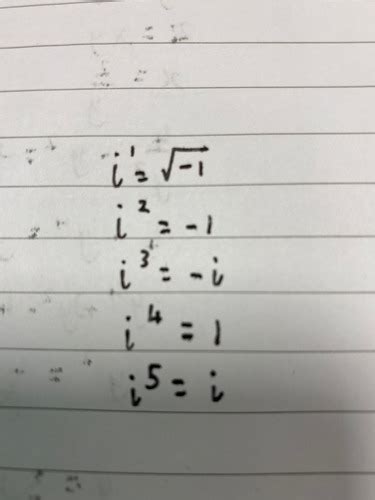 i¹ = √-1
i² = -1
i³ = -i
i⁴ = 1
i⁵ = i